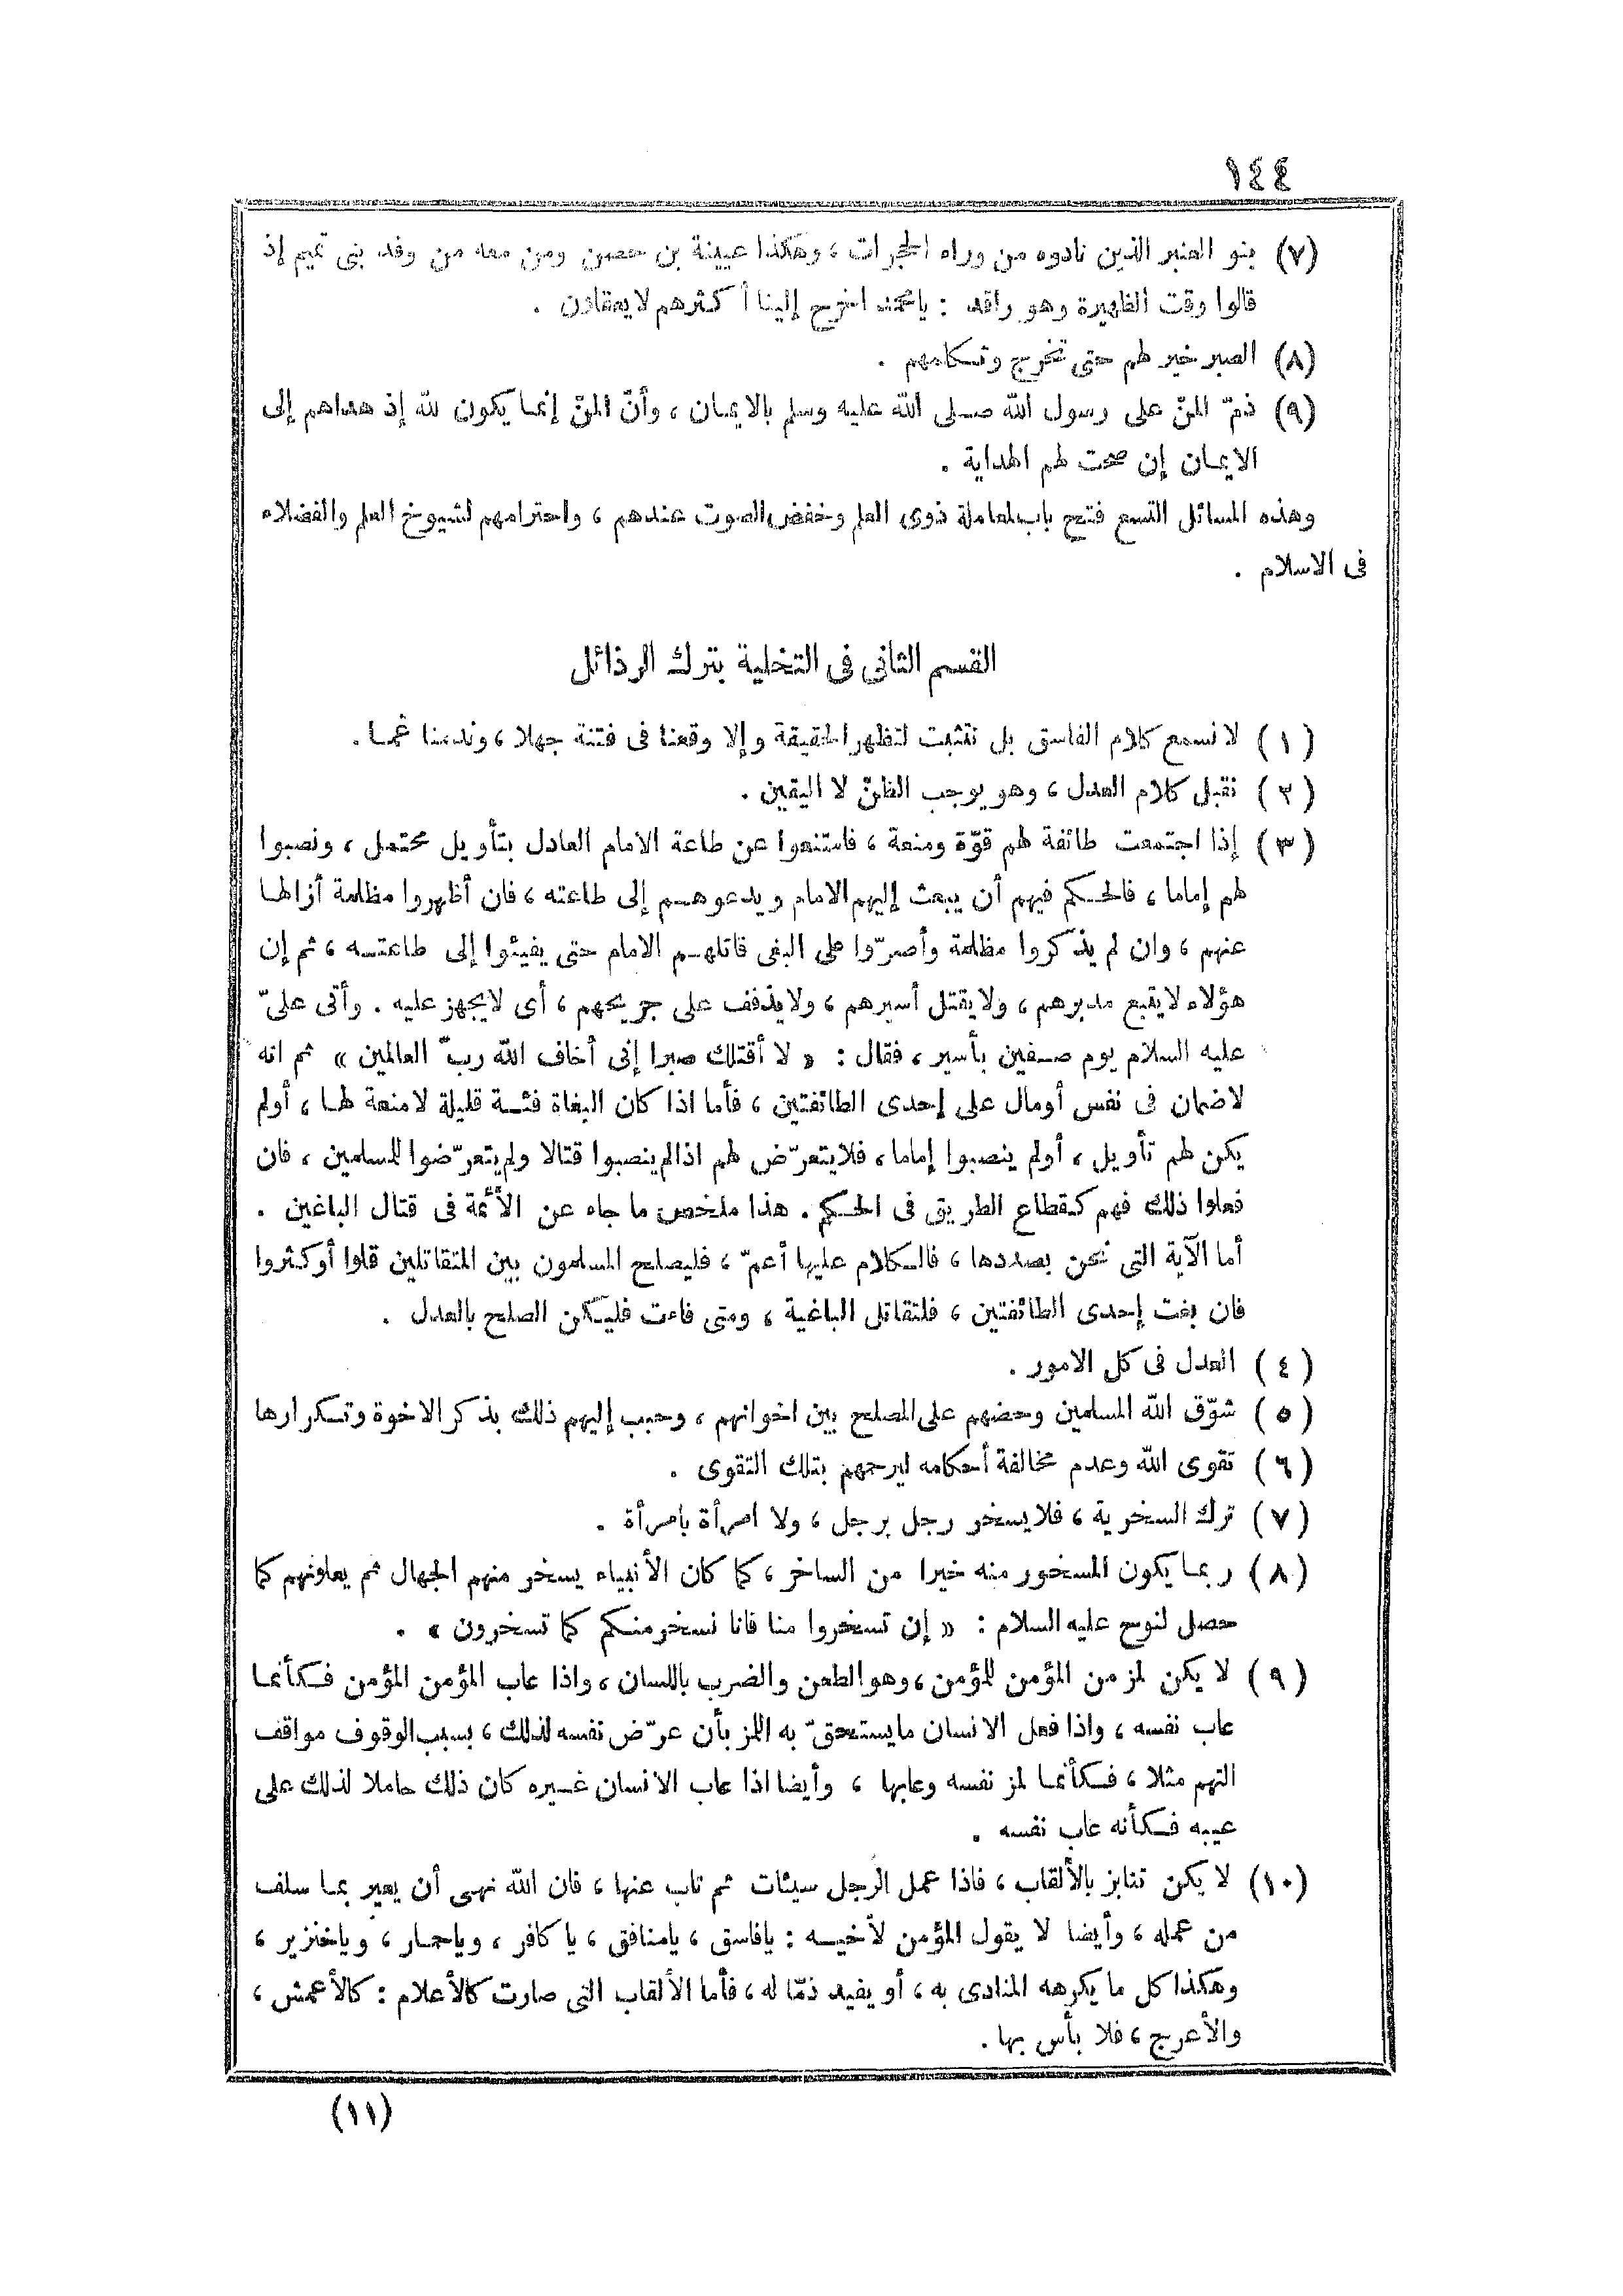 ١٤٤
(٧) بنو العنبر الذين نادوه من وراء الحجرات ، وهكذا عيينة بن حصن ومن معه من وفد بنى تميم إذ
قالوا وقت الظهيرة وهو راقد : يا محمد اخرج إلينا أكثرهم لا يعقلون .
(٨) الصبر خير لهم حتى تخرج وتكلمهم .
(٩) ذمّ المنّ على رسول الله صلى الله عليه وسلم بالايمان ، وأنّ المنّ إنما يكون لله إذ هداهم إلى
الايمان إن صحت لهم الهداية .
وهذه المسائل التسع فتح باب لمعاملة ذوى العلم وخفض الصوت عندهم ، واحترامهم لشيوخ العلم والفضلاء
فى الاسلام .
القسم الثانى فى التخلية بترك الرذائل
(١) لا نسمع كلام الفاسق بل نتثبت لتظهر الحقيقة وإلا وقعنا فى فتنة جهلا ، وندمنا غما .
(٢) نقبل كلام العدل ، وهو يوجب الظنّ لا اليقين .
(٣) إذا اجتمعت طائفة لهم قوّة ومنعة ، فامتنعوا عن طاعة الامام العادل بتأويل محتمل ، ونصبوا
لهم إماما ، فالحكم فيهم أن يبعث إليهم الامام ويدعوهم إلى طاعته ، فان أظهروا مظلمة أزالها
عنهم ، وان لم يذكروا مظلمة وأصرّوا على البغى قاتلهم الامام حتى يفيئوا إلى طاعته ، ثم إن
هؤلاء لا يتبع مدبرهم ، ولا يقتل أسيرهم ، ولا يذفف على جريحهم ، أى لا يجهز عليه . وأتى علىّ
عليه السلام يوم صفين بأسير ، فقال : « لا أقتلك صبرا إنى أخاف الله ربّ العالمين » ثم انه
لا ضمان فى نفس أو مال على إحدى الطائفتين ، فأما اذا كان البغاة فئة قليلة لا منعة لها ، أو لم
يكن لهم تأويل ، أو لم ينصبوا إماما ، فلا يتعرّض لهم اذا لم ينصبوا قتالا ولم يتعرّضوا للمسلمين ، فان
فعلوا ذلك فهم كقطاع الطريق فى الحكم . هذا ملخص ما جاء عن الأئمة فى قتال الباغين .
أما الآية التى نحن بصددها ، فالكلام عليها أعمّ ، فليصلح المسلمون بين المتقاتلين قلوا أو كثروا
فان بغت إحدى الطائفتين ، فلتقاتل الباغية ، ومتى فاءت فليكن الصلح بالعدل .
(٤) العدل فى كل الامور .
(٥) شوّق الله المسلمين وحضهم على الصلح بين اخوانهم ، وحبب إليهم ذلك بذكر الاخوة وتكرارها
(٦) تقوى الله وعدم مخالفة أحكامه ليرحمهم بتلك التقوى .
(٧) ترك السخرية ، فلا يسخر رجل برجل ، ولا امرأة بامرأة .
(٨) ربما يكون المسخور منه خيرا من الساخر ، كما كان الأنبياء يسخر منهم الجهال ثم يعلونهم كما
حصل لنوح عليه السلام : « إن تسخروا منا فانا نسخر منكم كما تسخرون » .
(٩) لا يكن لمز من المؤمن للمؤمن ، وهو الطعن والضرب باللسان ، واذا عاب المؤمن المؤمن فكأنما
عاب نفسه ، واذا فعل الانسان ما يستحقّ به اللمز بأن عرّض نفسه لذلك ، بسبب الوقوف مواقف
التهم مثلا ، فكأنما لمز نفسه وعابها ، وأيضا اذا عاب الانسان غيره كان ذلك حاملا لذلك على
عيبه فكأنه عاب نفسه .
(١٠) لا يكن تنابز بالألقاب ، فاذا عمل الرجل سيئات ثم تاب عنها ، فان الله نهى أن يعير بما سلف
من عمله ، وأيضا لا يقول المؤمن لأخيه : يافاسق ، يامنافق ، يا كافر ، وياحمار ، وياخنزير ،
وهكذا كل ما يكرهه المنادى به ، أو يفيد ذمّا له ، فأما الألقاب التى صارت كالأعلام : كالأعمش ،
والأعرج ، فلا بأس بها .
(١١)